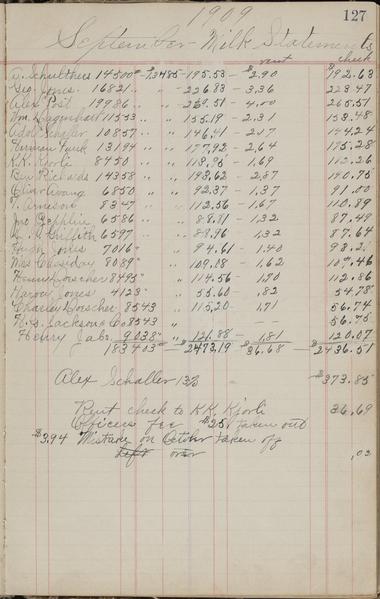 1909
127
September Milk Statements
rent check
A. Schulthers 14500# $13485 - 195.53 - $2.90 $192.63
Geo Jones 16821 " " - 226.83 - 3.36 223.47
Alex Post 19986 " " - 269.51 - 4.00 265.51
Wm Dagenhart 11533 " " - 155.19 - 2.31 153.48
Adolf Schafer 10857 " " - 146.41 - 2.17 144.24
Herman 13194 " " - 177.92 - 2.64 175.28
K.K. Kjorli 8450 " " - 113.95 - 1.69 112.26
Ben Richards 14358 " " - 193.62 - 2.87 190.75
6850 " " - 92.37 - 1.37 91.00
T. Arneson 8347 " " - 112.56 - 1.67 110.89
Jno Zepplin 6586 " " - 88.81 - 1.32 87.49
Griffith 6597 " " - 88.96 1.32 87.64
Hugh Jones 7016 " " - 94.61 - 1.40 93.21
Mrs Cassiday 8089 " " - 109.08 - 1.62 107.46
Henry Hoescher 8495 " " - 114.56 - 1.70 112.86
Harvey Jones 4123 " " - 55.60 - .82 54.78
Charley Hoescher 8543 " " - 115.20 - 1.71 56.74
H.G. Jackson & Co 8543 " " - - 56.75
Henry Jabs 9038 " " - 121.88 - 1.81 120.07
183403 $2473.19 $36.68 $2436.51
Alex Schaller 13% $373.85
Rent check to K.K. Kjorli 36.69
Officers fee $25 taken out
$3.94 Mistake on October taken off
left over .03